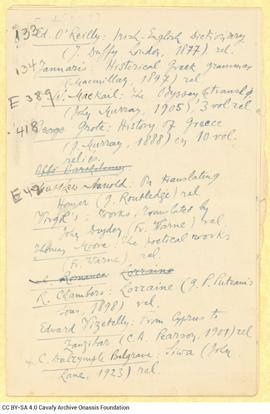 133 Ed. O'Reilly: Irish-English Dictionary
(J. Duffy London, 1877) rel.
134 Jannaris: Historical Greek grammar
(Macmillan, 1897) rel
E 389 Mackail: The Odyssey translated
(John Murray, 1905) 3 vol rel
418 George Grote: History of Greece
(J. Murray, 1888) en 10 vol.
reliés.
E 42 Matthew Arnold: On translating
Homer (J. Routledge) rel
Virgil's: Works, translated by
John Dryden (Fr. Warne) rel.
Thomas Moore: The poetical works
(Fr. Warne), rel.
Romance Lorraine
R. Chambers: Lorraine (G. P. Putnam's
Sons, 1898) rel.
Edward Vizetelly: From Cyprus to
Zanzibar (C.A. Pearson, 1901) rel
C. Dalrymple Belgrave: Siwa (John
Lane, 1923) rel.
CC BY-SA 4.0 Cavafy Archive Onassis Foundation